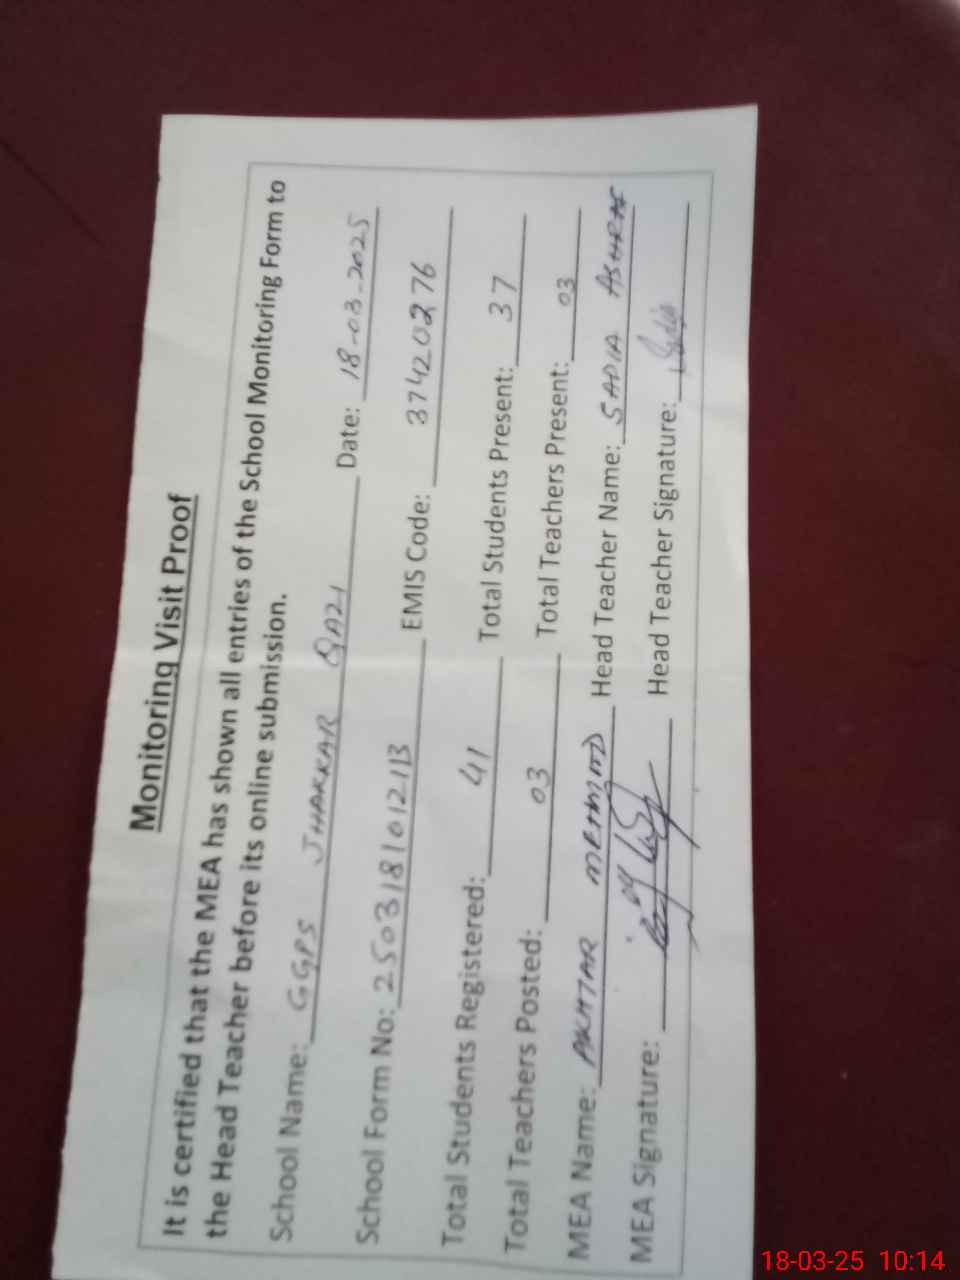 Monitoring Visit Proof
It is certified that the MEA has shown all entries of the School Monitoring Form to
the Head Teacher before its online submission.
School Name: GGPS JHAKKAR QAZI Date: 18-03-2025
School Form No: 2503181012113 EMIS Code: 37420276
Total Students Registered: 41 Total Students Present: 37
Total Teachers Posted: 03 Total Teachers Present: 03
MEA Name: AKHTAR MEHMOOD Head Teacher Name: SADIA ASHRAF
MEA Signature: Head Teacher Signature: Sadia
18-03-25 10:14